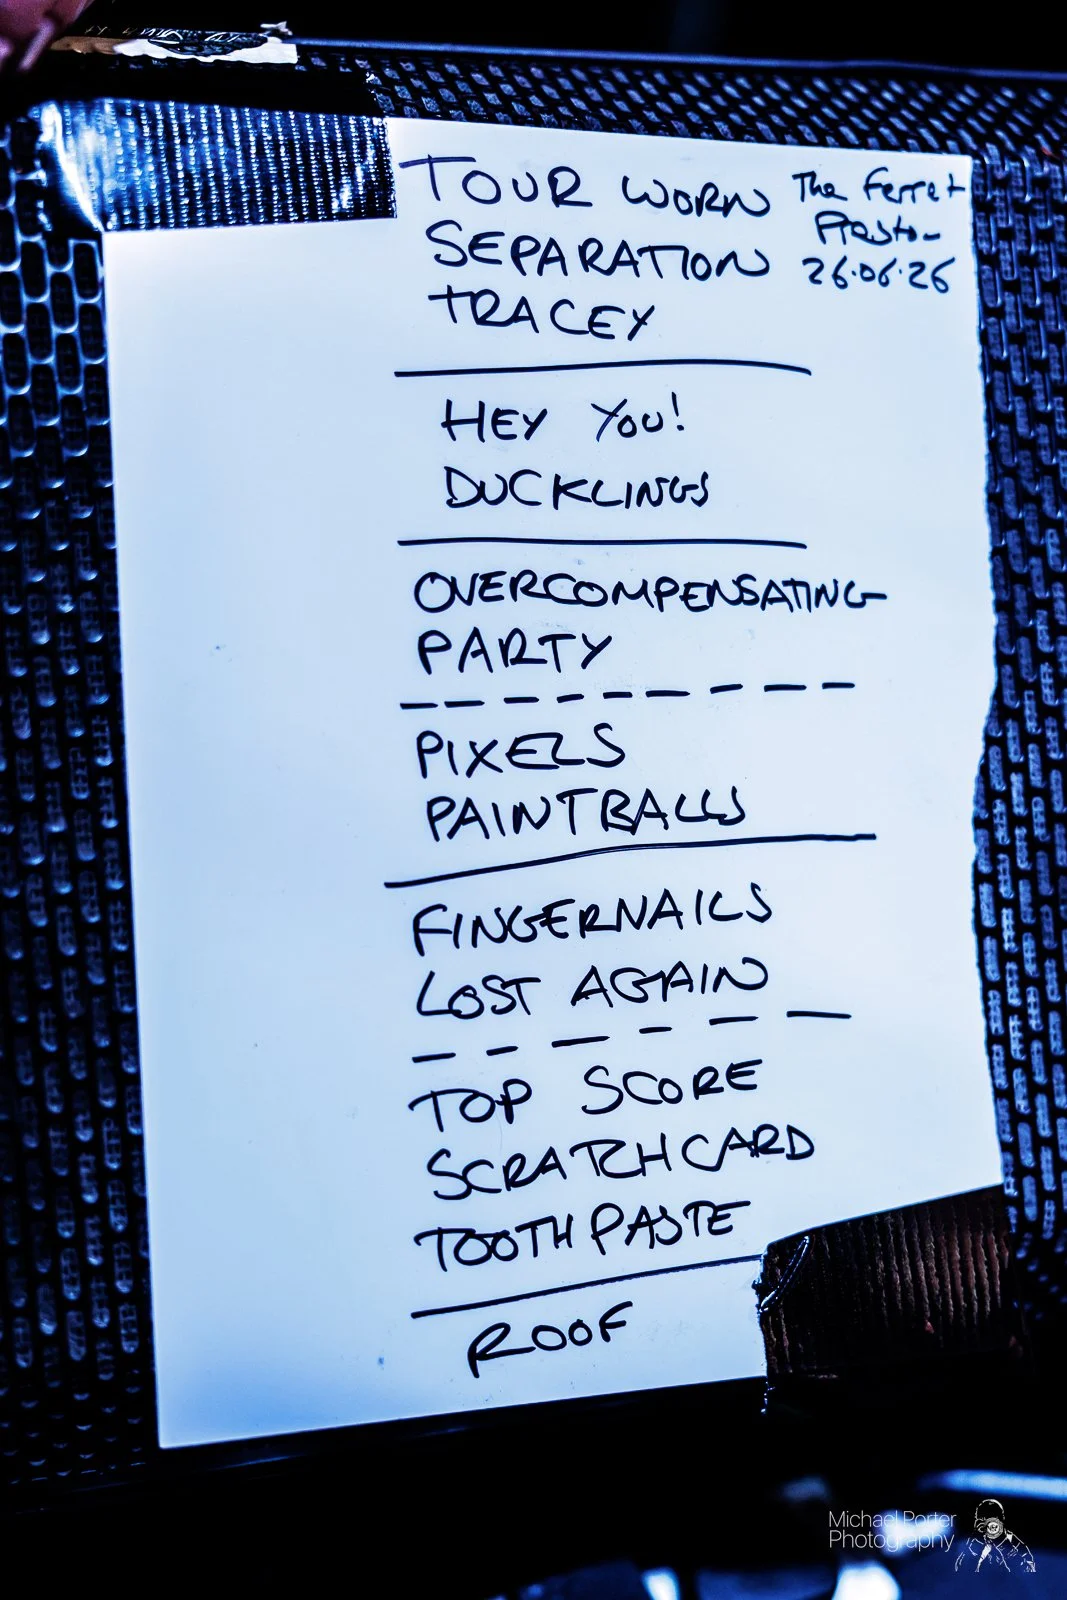 TOUR WORN
SEPARATION
TRACEY
The Ferret
Preston
26.06.26
HEY YOU!
DUCKLINGS
OVERCOMPENSATING
PARTY
PIXELS
PAINTBALLS
FINGERNAILS
LOST AGAIN
TOP SCORE
SCRATCHCARD
TOOTHPASTE
ROOF
Michael Porter
Photography